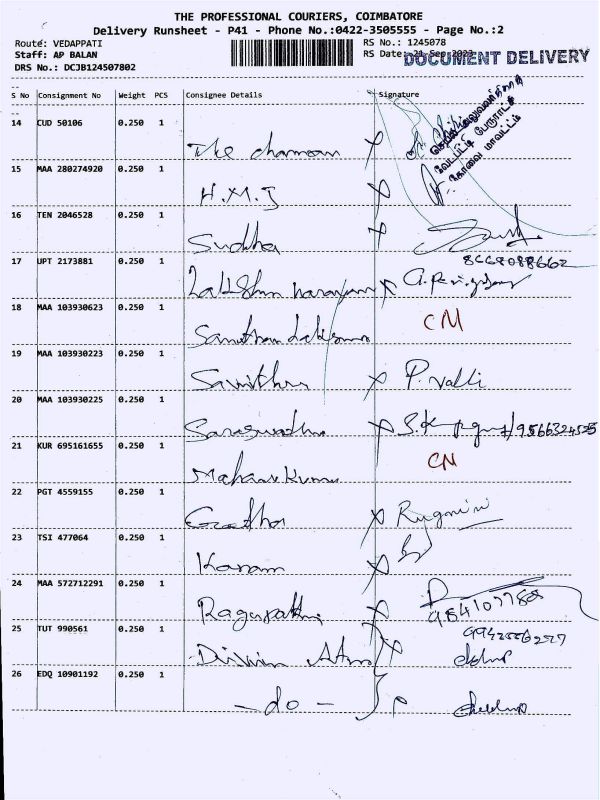 THE PROFESSIONAL COURIERS, COIMBATORE
Delivery Runsheet - P41 - Phone No.:0422-3505555 - Page No.:2
Route: VEDAPPATI
RS No.: 1245078
Staff: AP BALAN
RS Date: 21 Sep 2023
DOCUMENT DELIVERY
DRS No.: DCJB124507802
S No Consignment No Weight PCS Consignee Details Signature
14 CUD 50106 0.250 1 The
15 MAA 280274920 0.250 1 H.M.J
16 TEN 2046528 0.250 1 Sudha
8668088662
17 UPT 2173881 0.250 1 Lakshmi narayanan
18 MAA 103930623 0.250 1 CM
19 MAA 103930223 0.250 1 Savithri P. Valli
20 MAA 103930225 0.250 1
21 KUR 695161655 0.250 1 Kumar CN
22 PGT 4559155 0.250 1 Geetha Rugmini
23 TSI 477064 0.250 1 Karam
24 MAA 572712291 0.250 1 Ragupathi
25 TUT 990561 0.250 1
26 EDQ 10901192 0.250 1 - do -